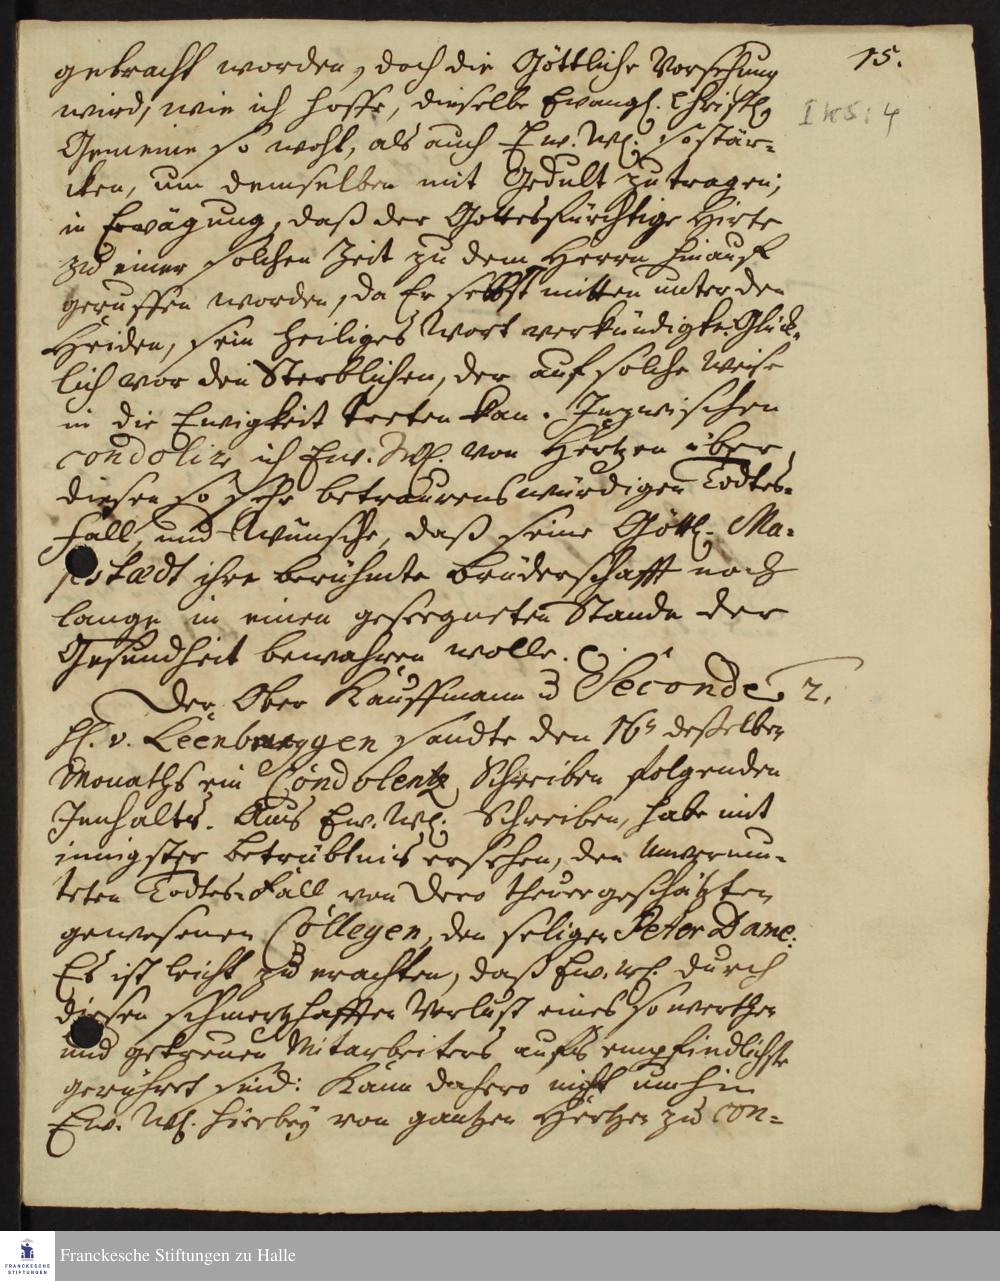 15.
I K 5 : 4
gebracht worden, doch die Göttliche Vorsehung
wird, wie ich hoffe, dieselbe Evangl. Christl.
Gemeine so wohl, als auch Ew. Wl. so stär-
cken, um demselben mit Gedult zu tragen;
in Erwägung, daß der Gottesfürchtige Hirte
zu einer solchen Zeit zu dem Herrn hinauf
geruffen worden, da Er selbst mitten unter den
Heiden, sein heiliges Wort verkündigte. Glück-
lich vor den Sterblichen, der auf solche Weise
in die Ewigkeit treten kan. Inzwischen
condolire ich Ew. Wl. von Hertzen über
diesen so sehr betraurenswürdigen Todtes-
fall, und wünsche, daß seine Göttl. Ma-
jestædt ihre berühmte Brüderschafft noch
lange in einen geseegneten Stande der
Gesundheit bewahren wolle.
Der Ober Kauffmann u. Seconde 2.
H. v. Leenbruggen sandte den 16t deßelben
Monaths ein Condolentz Schreiben folgenden
Innhalts. Aus Ew. Wl. Schreiben, habe mit
innigster Betrübtnis ersehen, den unvermu-
teten Todtes-Fall von Dero theuergeschätzten
gewesenen Collegen, den seligen Peter Dame.
Es ist leicht zu erachten, daß Ew. Wl. durch
diesen schmertzhafften Verlust eines so werthen
und getreuen Mitarbeiters aufs empfindlichste
gerühret sind: Kann dahero nicht umhin
Ew. Wl. hierbey von gantzen Hertzen zu con-
FRANCKESCHE
STIFTUNGEN
Franckesche Stiftungen zu Halle